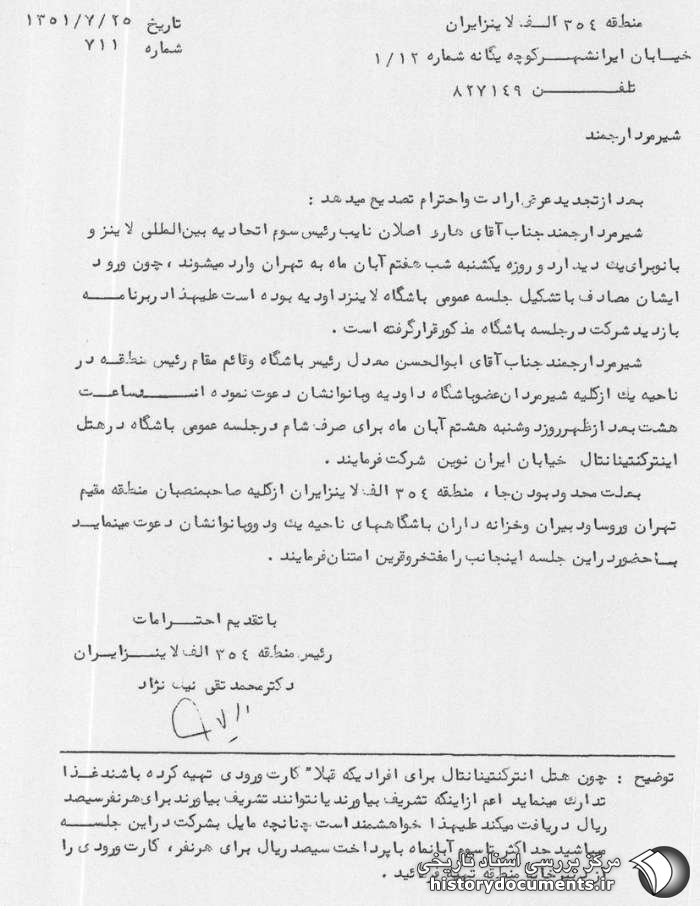 منطقه ٣٥٤ الف لاینز ایران
خیابان ایرانشهر کوچه یگانه شماره ١/١٢
تلفن ٨٢٧١٤٩
تاریخ ١٣٥١/٧/٢٥
شماره ٧١١
شیرمرد ارجمند
بعد از تجدید عرض ارادت و احترام تصدیع میدهد :
شیرمرد ارجمند جناب آقای هاری اصلان نایب رئیس سوم اتحادیه بین‌المللی لاینز و
بانو برای یک دیدار دو روزه یکشنبه شب هفتم آبان ماه به تهران وارد میشوند ، چون ورود
ایشان مصادف با تشکیل جلسه عمومی باشگاه لاینز داودیه بوده است علیهذا در برنامه
بازدید شرکت در جلسه باشگاه مذکور قرار گرفته است .
شیرمرد ارجمند جناب آقای ابوالحسن معدل رئیس باشگاه و قائم مقام رئیس منطقه در
ناحیه یک از کلیه شیرمردان عضو باشگاه داودیه و بانوانشان دعوت نموده اند ساعت
هشت بعد از ظهر روز دوشنبه هشتم آبان ماه برای صرف شام در جلسه عمومی باشگاه در هتل
اینترکنتینانتال خیابان ایران نوین شرکت فرمایند .
بعلت محدود بودن جا ، منطقه ٣٥٤ الف لاینز ایران از کلیه صاحبمنصبان منطقه مقیم
تهران و روسا و دبیران و خزانه داران باشگاههای ناحیه یک و دو و بانوانشان دعوت مینماید
با حضور در این جلسه اینجانب را مفتخر و قرین امتنان فرمایند .
با تقدیم احترامات
رئیس منطقه ٣٥٤ الف لاینز ایران
دکتر محمد تقی نیک نژاد
توضیح : چون هتل انترکنتیناتال برای افرادیکه قبلا" کارت ورودی تهیه کرده باشند غذا
تدارک مینماید اعم از اینکه تشریف بیاورند یا نتوانند تشریف بیاورند برای هر نفر سیصد
ریال دریافت میکند علیهذا خواهشمند است چنانچه مایل بشرکت در این جلسه
میباشید حداکثر تا سوم آبانماه با پرداخت سیصد ریال برای هر نفر، کارت ورودی را
از دبیرخانه منطقه تهیه فرمائید .
مرکز بررسی اسناد تاریخی
historydocuments.ir